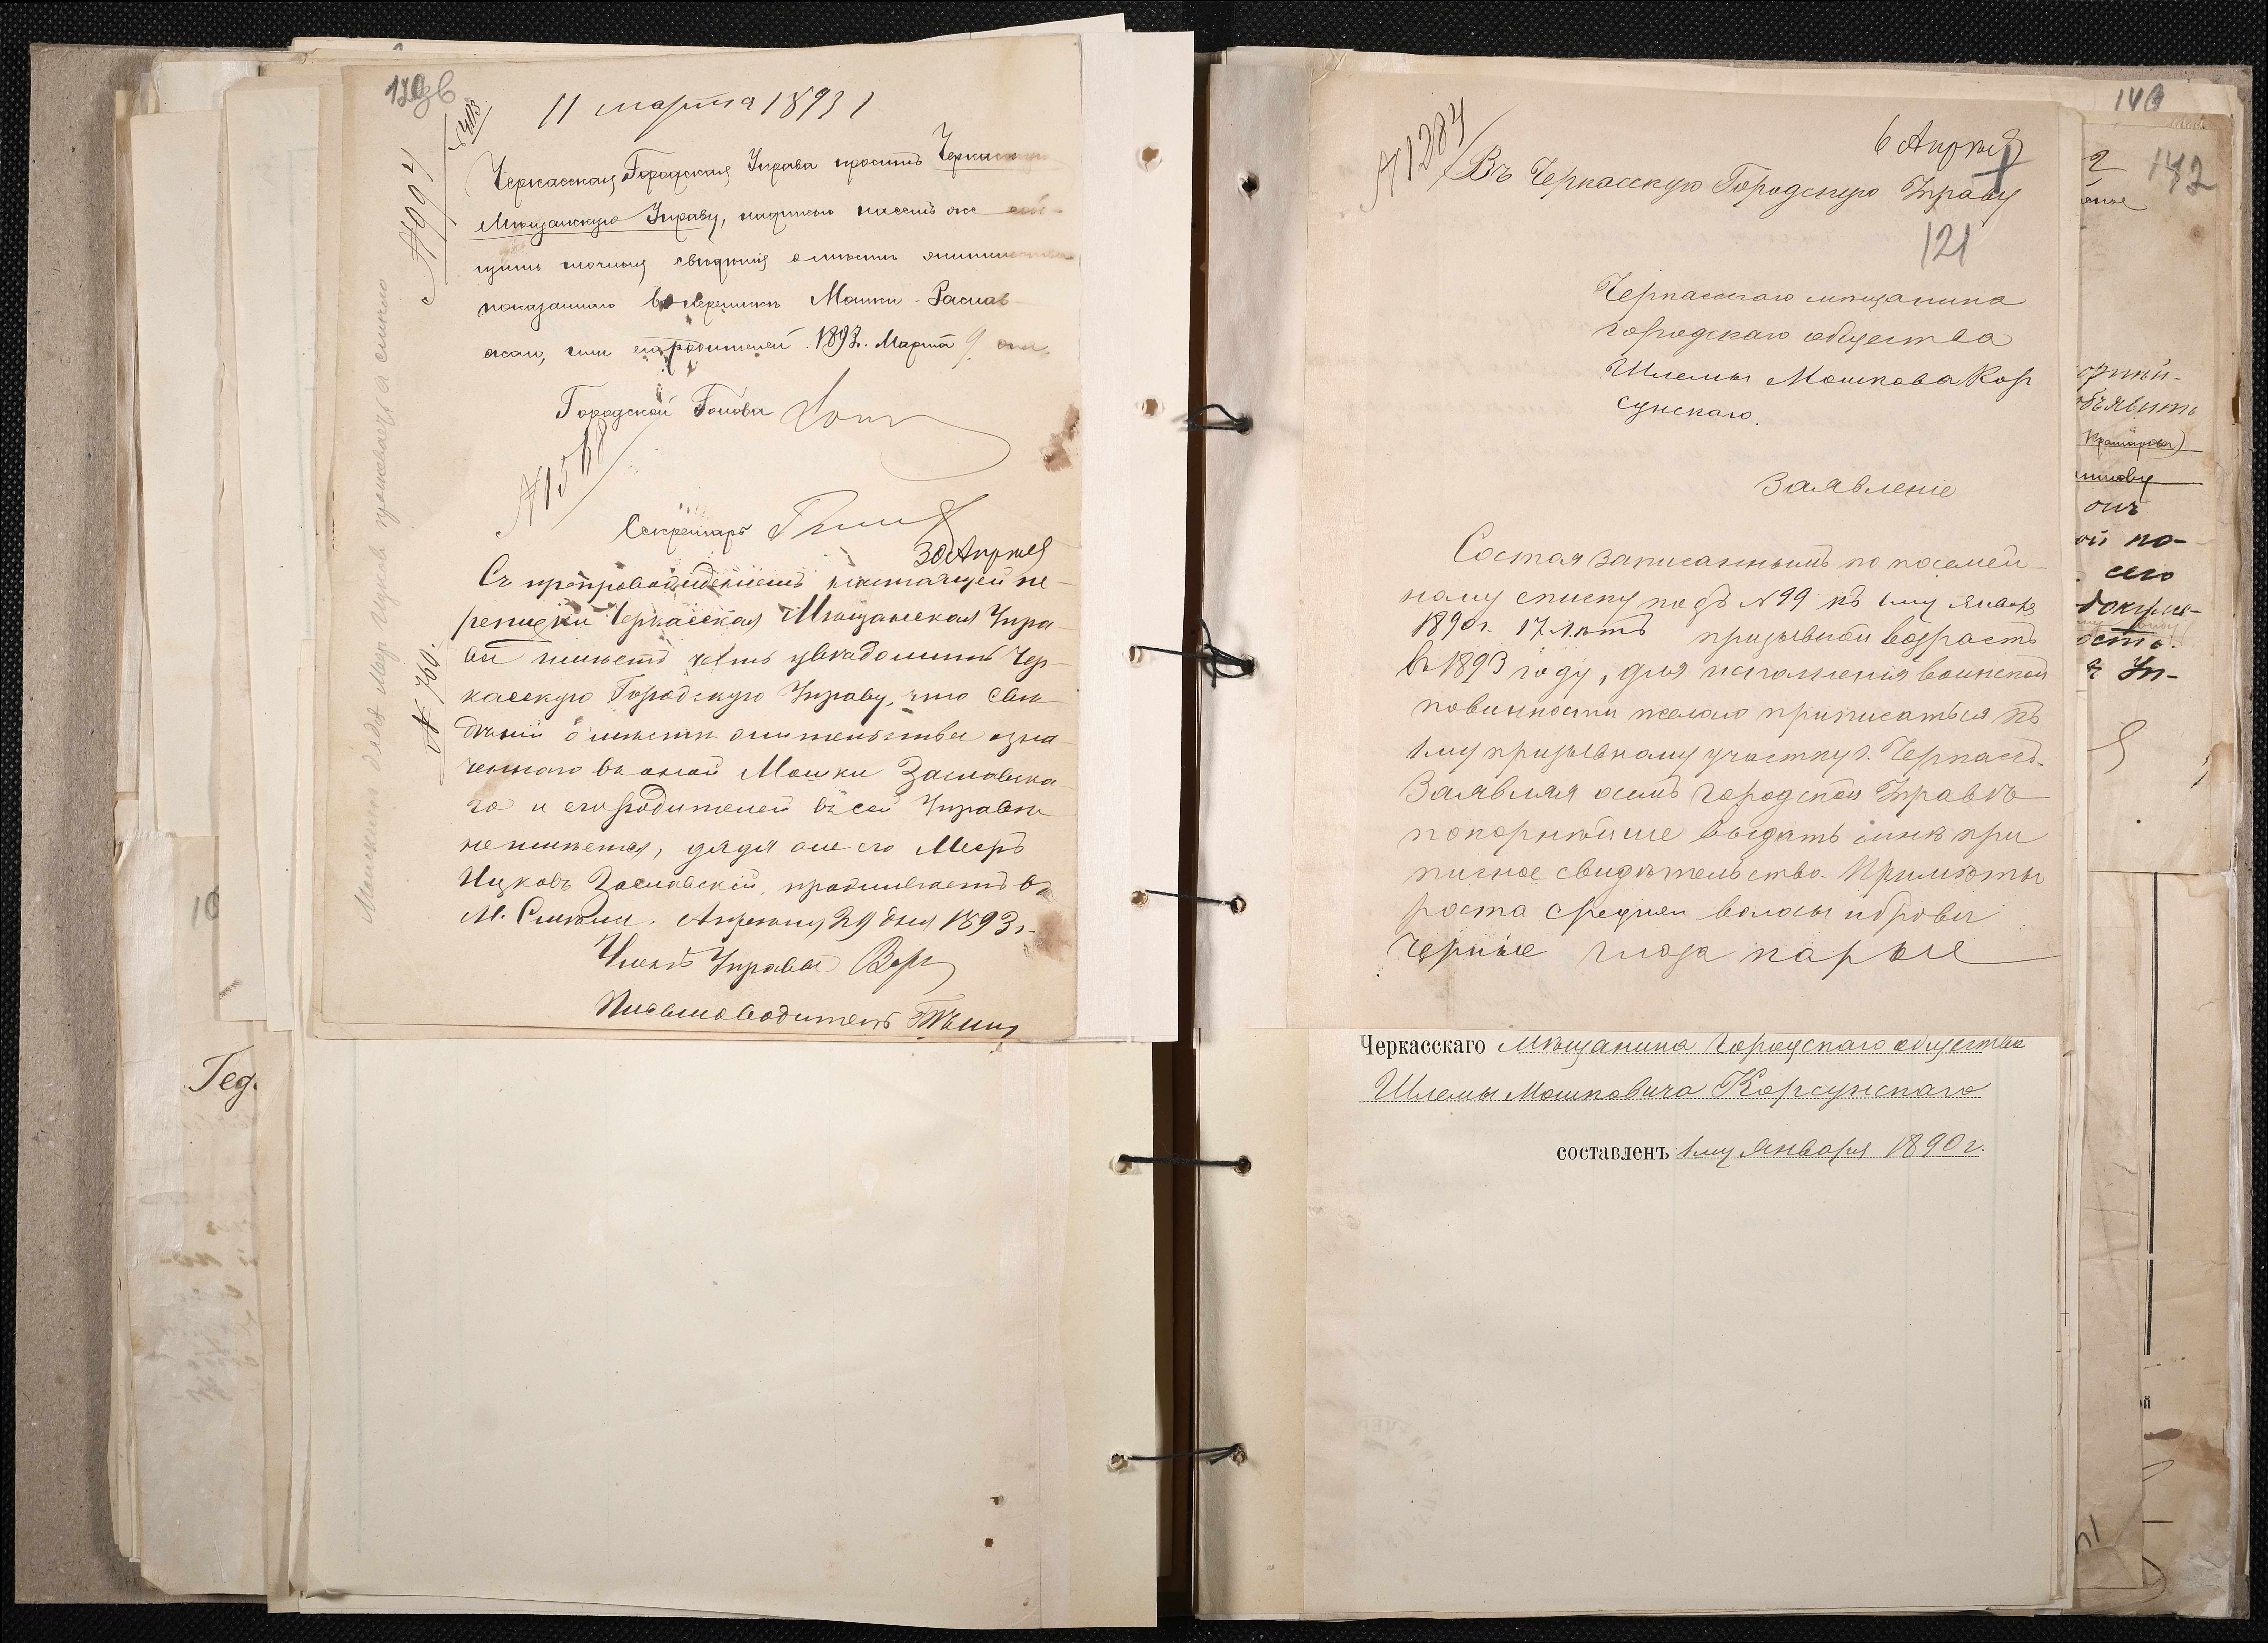 120зв
11 марта 1893 г
№ 994
Черкасская Городская Управа проситъ
Мѣщанскую Управу, надписью на семъ же
щить точныя свѣдѣнія о мѣстѣ жительства
показаннаго въ перепискѣ Мошки Заслав-
скаго, или его родителей. 1893 г. Марта 9 дня.
Городской Голова
№ 1568
Секретарь
30 Апрѣля
Съ препровожденіемъ настоящей пе-
реписки Черкасская Мѣщанская Упра-
ва имѣетъ честь увѣдомить Чер-
касскую Городскую Управу, что свѣ-
дѣній о мѣстѣ жительства озна-
ченнаго въ оной Мошки Заславска-
го и его родителей въ сей Управѣ
не имѣется, дядя же его Мееръ
Ицковъ Заславскій, проживаетъ въ
М. Смѣлѣ. Апрѣля 29 дня 1893 г.
Членъ Управы
Письмоводитель
№ 760.
10
Гед.
№ 1284
6 Апрѣля
Въ Черкасскую Городскую Управу
121
Черкасскаго мѣщанина
городскаго общества
Шлемы Мошкова Кор
сунскаго.
Заявленіе
Состоя записаннымъ по посемей-
ному списку подъ № 99 къ 1му Января
1890 г. 17 лѣтъ призывной возрастъ
въ 1893 году, для исполненія воинской
повинности желаю приписаться къ
1му призывному участку г. Черкассъ.
Заявляя о семъ городской Управѣ
покорнѣйше выдать мнѣ при
писное свидѣтельство. Примѣты
роста средняго волосы и брови
черные глаза карые
Черкасскаго Мѣщанина городскаго общества
Шлемы Мошковича Корсунскаго
составленъ 1му Января 1890 г.
140
142
объявить
онъ
ой по-
сего
докуме-
Уп-